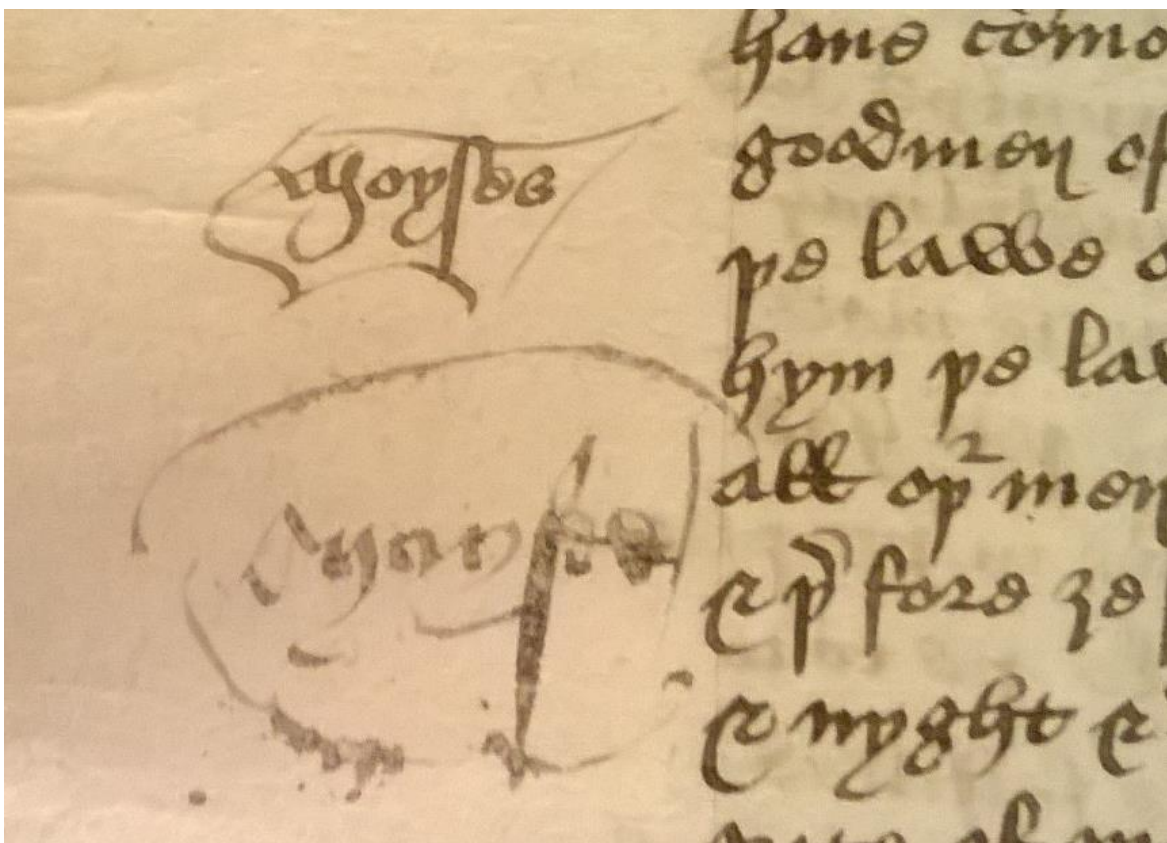 Moyses
Moyses
haue com̄o
goodmen of
þe lawe o
hym þe law
all oþ² men
& þ̉ fore ȝe
& nyght &